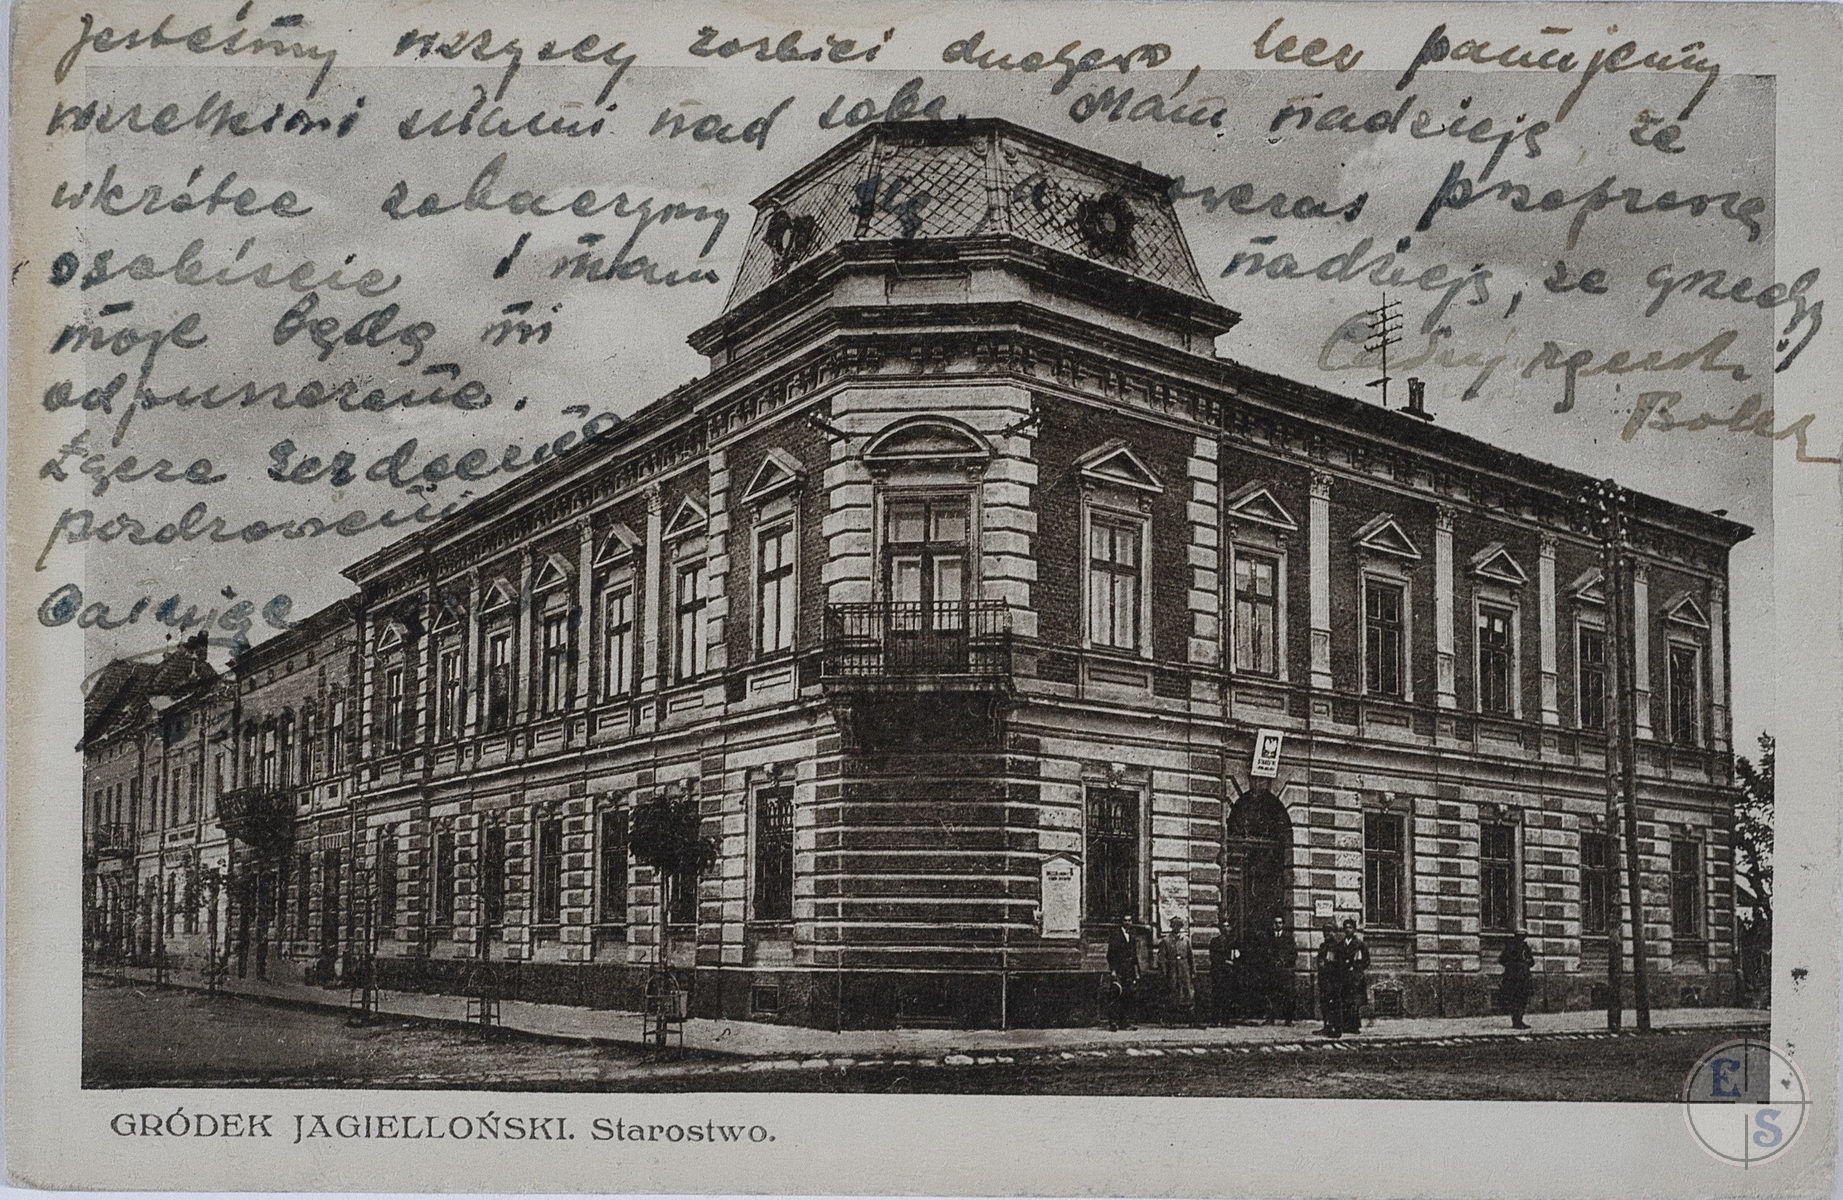 jesteśmy wszyscy rozbici duchowo, lecz panujemy
wszelkimi siłami nad sobą. Mam nadzieję, że
wkrótce zobaczymy się, a wówczas przeproszę
osobiście i mam nadzieję, że grzechy
moje będą mi
odpuszczone.
Łączę serdeczne
pozdrowienia
Całuję rączki
Bolek
STAROSTWO
GRÓDEK JAGIELLOŃSKI. Starostwo.
E
S